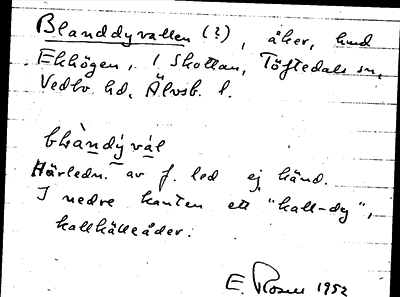 Blanddyvallen (?), åker, hmd
Ekhögen, i Skottan, Töftedals sn,
Vedbo hd, Älvsb. l.
blàndy̆väl
Härledn. av f. led ej känd.
I nedre kanten ett "kall-dy",
kallkälleåder.
E. Rosell 1952